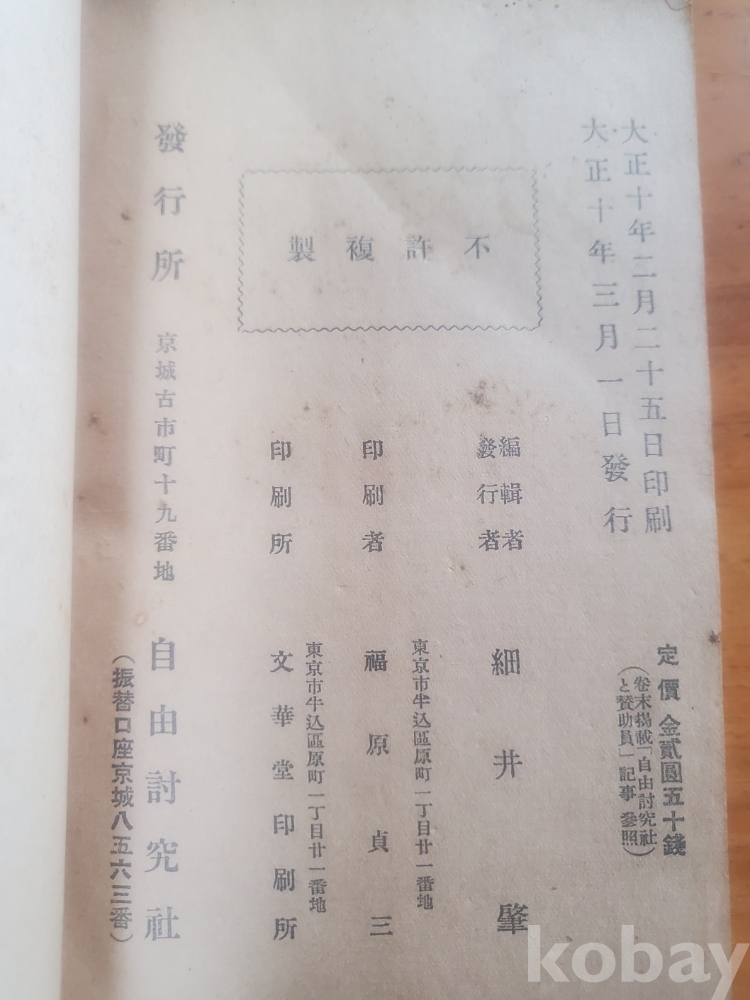 大正十年二月二十五日印刷
大正十年三月一日發行
定價 金貳圓五十錢
(卷末揭載「自由討究社
と贊助員」記事參照)
不許複製
編輯者
發行者
細井肇
東京市牛込區原町一丁目廿一番地
印刷者
福原貞三
東京市牛込區原町一丁目廿一番地
印刷所
文華堂印刷所
發行所
京城古市町十九番地
自由討究社
(振替口座京城八五六三番)
kobay